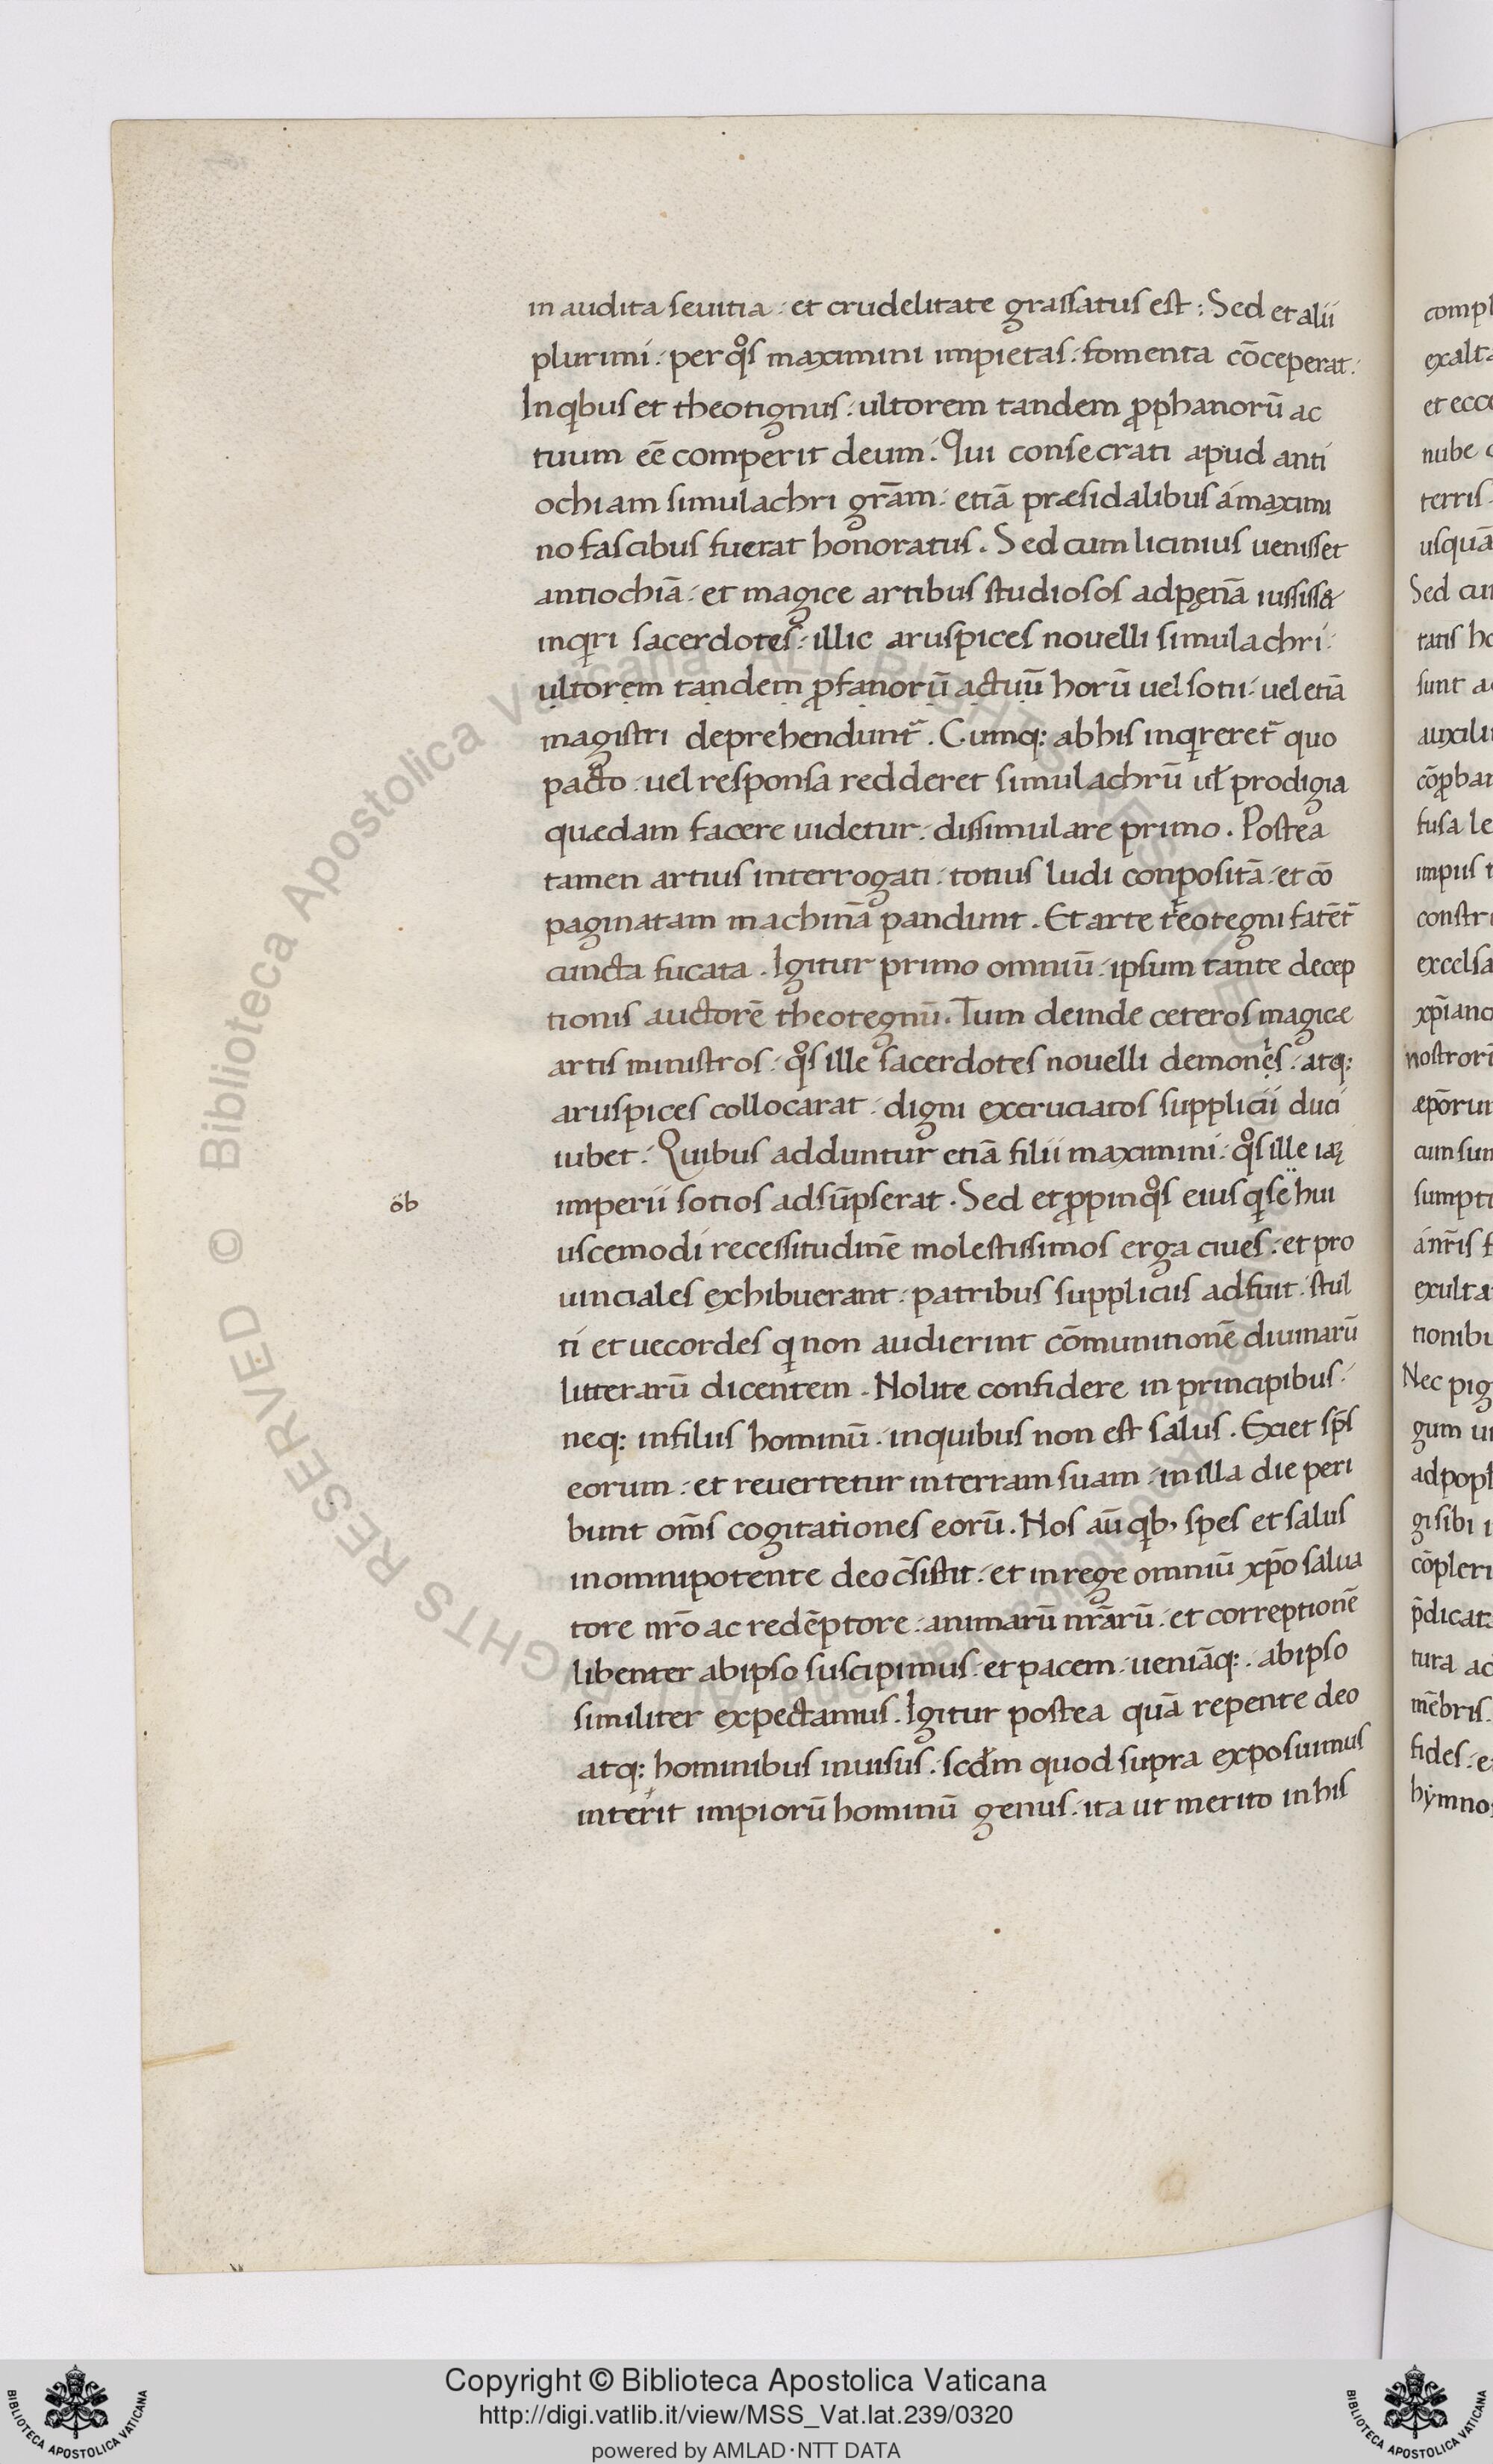 in audita seuitia · et crudelitate grassatus est : Sed et alii
plurimi · per qos maximini impietas · fomenta cōceperat ·
Inqibus et theotignus · ultorem tandem ꝓphanorū ac
tuum eē comperit deum · Qui consecrati apud anti
ochiam simulachri grām · etiā præsidalibus á maximi
no fascibus fuerat honoratus . Sed cum licinius uenisset
antiochiā · et magice artibus studiosos adpęnā iussiss&
inqiri sacerdotes · illic aruspices nouelli simulachri ·
ultorem tandem ꝓfanorū actuū horū uel sotii · uel etiā
magistri deprehendunt᷑ . Cumq: abhis inqireret᷑ quo
pacto · uel responsa redderet simulachrū uł prodigia
quædam facere uidetur · dissimulare primo . Postea
tamen artius interrogati · totius ludi conpositā · et cō
paginatam machinā pandunt . Et arte teotegni fatēt᷑
cuncta fucata . Igitur primo omniū · ipsum tante decep
tionis auctorē theotegnū . Tum deinde ceteros magicæ
artis ministros · qos ille sacerdotes nouelli demones · atq:
aruspices collocarat · digni excruciatos supplicii duci
iubet · Quibus adduntur etiā filii maximini · qos ille iaꝫ
imperii sotios adsūpserat . Sed et ꝓpinqos eius qi se hui
öb
uscemodi recessitudinē molestissimos erga ciues · et pro
uinciales exhibuerant · patribus suppliciis adfuit · stul
ti et uecordes qi non audierint cōmunitionē diuinarū
litterarū dicentem . Nolite confidere in principibus ·
neq: infiliis hominū · inquibus non est salus . Exiet sp̄s
eorum · et reuertetur in terram suam · in illa die peri
bunt om̄s cogitationes eorū . Nos aū qib, spes et salus
inomnipotente deo c̄sistit · et in rege omniū xp̄o salua
tore nr̄o ac redēptore · animarū nr̄arū · et correptionē
libenter abipso suscipimus · et pacem · ueniāq: · abipso
similiter expectamus . Igitur postea quā repente deo
atq: hominibus inuisus · scđm quod supra exposuimus
interit impiorū hominū genus · ita ut merito in his
compl
exalta
et ecce
nube
terris
usquā
Sed cu
tatis ho
sunt a
auxili
cōꝓbar
fusa le
impiis t
constr
excelsa
xp̄iano
nostrorū
æpōrum
cum sum
sumpt
á nr̄is f
exulta
tionibu
Nec pig
gum
ad popl
gi sibi
cōpleri
p̄dicat
tura ad
mēbris
fides · e
hẏmnos
Copyright © Biblioteca Apostolica Vaticana
http://digi.vatlib.it/view/MSS_Vat.lat.239/0320
powered by AMLAD·NTT DATA